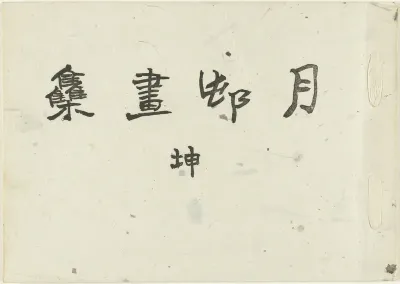 月邨畫雧
坤